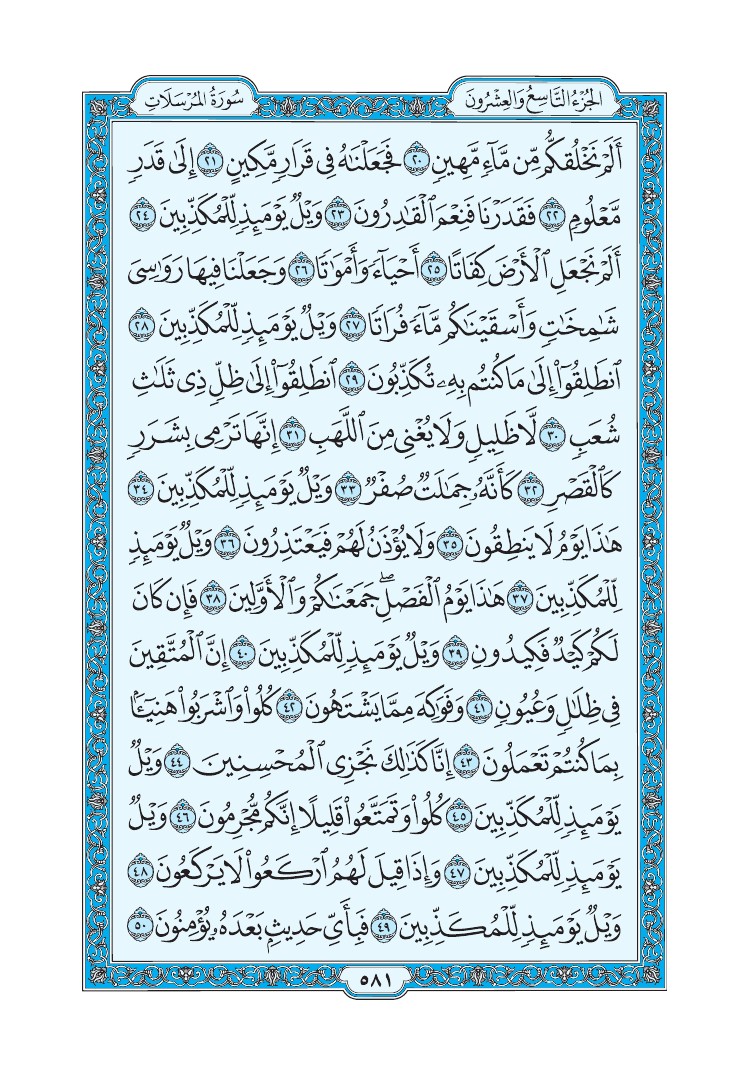 الجزء التاسع والعشرون
سورة المرسلات
أَلَمْ نَخْلُقكُّم مِّن مَّآءٍ مَّهِينٍ ٢٠ فَجَعَلْنَٰهُ فِى قَرَارٍ مَّكِينٍ ٢١ إِلَىٰ قَدَرٍ
مَّعْلُومٍ ٢٢ فَقَدَرْنَا فَنِعْمَ ٱلْقَٰدِرُونَ ٢٣ وَيْلٌ يَوْمَئِذٍ لِّلْمُكَذِّبِينَ ٢٤
أَلَمْ نَجْعَلِ ٱلْأَرْضَ كِفَاتًا ٢٥ أَحْيَآءً وَأَمْوَٰتًا ٢٦ وَجَعَلْنَا فِيهَا رَوَٰسِىَ
شَٰمِخَٰتٍ وَأَسْقَيْنَٰكُم مَّآءً فُرَاتًا ٢٧ وَيْلٌ يَوْمَئِذٍ لِّلْمُكَذِّبِينَ ٢٨
ٱنطَلِقُوٓا۟ إِلَىٰ مَا كُنتُم بِهِۦ تُكَذِّبُونَ ٢٩ ٱنطَلِقُوٓا۟ إِلَىٰ ظِلٍّ ذِى ثَلَٰثِ
شُعَبٍ ٣٠ لَّا ظَلِيلٍ وَلَا يُغْنِى مِنَ ٱللَّهَبِ ٣١ إِنَّهَا تَرْمِى بِشَرَرٍ
كَٱلْقَصْرِ ٣٢ كَأَنَّهُۥ جِمَٰلَتٌ صُفْرٌ ٣٣ وَيْلٌ يَوْمَئِذٍ لِّلْمُكَذِّبِينَ ٣٤
هَٰذَا يَوْمُ لَا يَنطِقُونَ ٣٥ وَلَا يُؤْذَنُ لَهُمْ فَيَعْتَذِرُونَ ٣٦ وَيْلٌ يَوْمَئِذٍ
لِّلْمُكَذِّبِينَ ٣٧ هَٰذَا يَوْمُ ٱلْفَصْلِ ۖ جَمَعْنَٰكُمْ وَٱلْأَوَّلِينَ ٣٨ فَإِن كَانَ
لَكُمْ كَيْدٌ فَكِيدُونِ ٣٩ وَيْلٌ يَوْمَئِذٍ لِّلْمُكَذِّبِينَ ٤٠ إِنَّ ٱلْمُتَّقِينَ
فِى ظِلَٰلٍ وَعُيُونٍ ٤١ وَفَوَٰكِهَ مِمَّا يَشْتَهُونَ ٤٢ كُلُوا۟ وَٱشْرَبُوا۟ هَنِيٓـًٔۢا
بِمَا كُنتُمْ تَعْمَلُونَ ٤٣ إِنَّا كَذَٰلِكَ نَجْزِى ٱلْمُحْسِنِينَ ٤٤ وَيْلٌ
يَوْمَئِذٍ لِّلْمُكَذِّبِينَ ٤٥ كُلُوا۟ وَتَمَتَّعُوا۟ قَلِيلًا إِنَّكُم مُّجْرِمُونَ ٤٦ وَيْلٌ
يَوْمَئِذٍ لِّلْمُكَذِّبِينَ ٤٧ وَإِذَا قِيلَ لَهُمُ ٱرْكَعُوا۟ لَا يَرْكَعُونَ ٤٨
وَيْلٌ يَوْمَئِذٍ لِّلْمُكَذِّبِينَ ٤٩ فَبِأَىِّ حَدِيثٍۭ بَعْدَهُۥ يُؤْمِنُونَ ٥٠
٥٨١